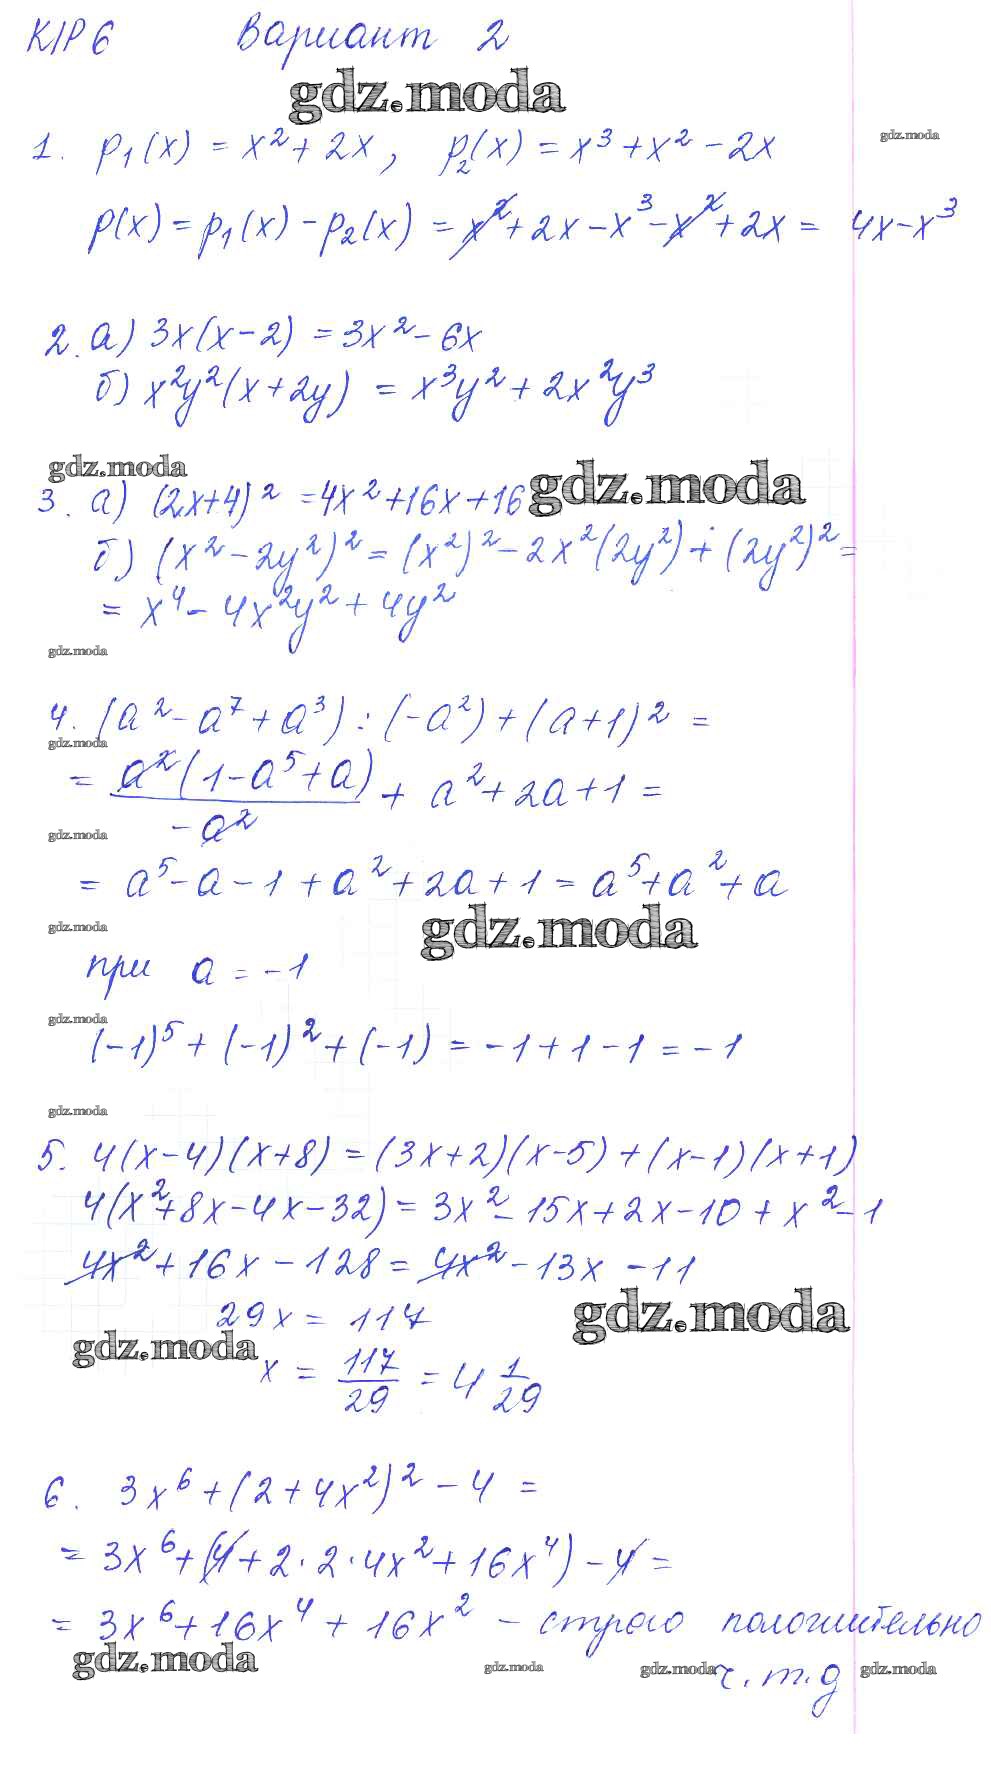 К/Р 6 Вариант 2
gdz.moda
1. p₁(x) = x² + 2x, p₂(x) = x³ + x² - 2x
gdz.moda
p(x) = p₁(x) - p₂(x) = x² + 2x - x³ - x² + 2x = 4x - x³
2. а) 3x(x-2) = 3x² - 6x
б) x²y²(x+2y) = x³y² + 2x²y³
gdz.moda
3. а) (2x+4)² = 4x² + 16x + 16
gdz.moda
б) (x² - 2y²)² = (x²)² - 2x²(2y²) + (2y²)² =
= x⁴ - 4x²y² + 4y²
gdz.moda
4. (a² - a⁷ + a³) : (-a²) + (a+1)² =
gdz.moda
= a²(1 - a⁵ + a) / -a² + a² + 2a + 1 =
gdz.moda
= a⁵ - a - 1 + a² + 2a + 1 = a⁵ + a² + a
gdz.moda
gdz.moda
при a = -1
gdz.moda
(-1)⁵ + (-1)² + (-1) = -1 + 1 - 1 = -1
gdz.moda
5. 4(x-4)(x+8) = (3x+2)(x-5) + (x-1)(x+1)
4(x² + 8x - 4x - 32) = 3x² - 15x + 2x - 10 + x² - 1
4x² + 16x - 128 = 4x² - 13x - 11
29x = 117
gdz.moda
gdz.moda
x = 117/29 = 4 1/29
6. 3x⁶ + (2 + 4x²)² - 4 =
= 3x⁶ + (4 + 2·2·4x² + 16x⁴) - 4 =
= 3x⁶ + 16x⁴ + 16x² - строго положительно
gdz.moda
gdz.moda
gdz.moda
ч.т.д
gdz.moda